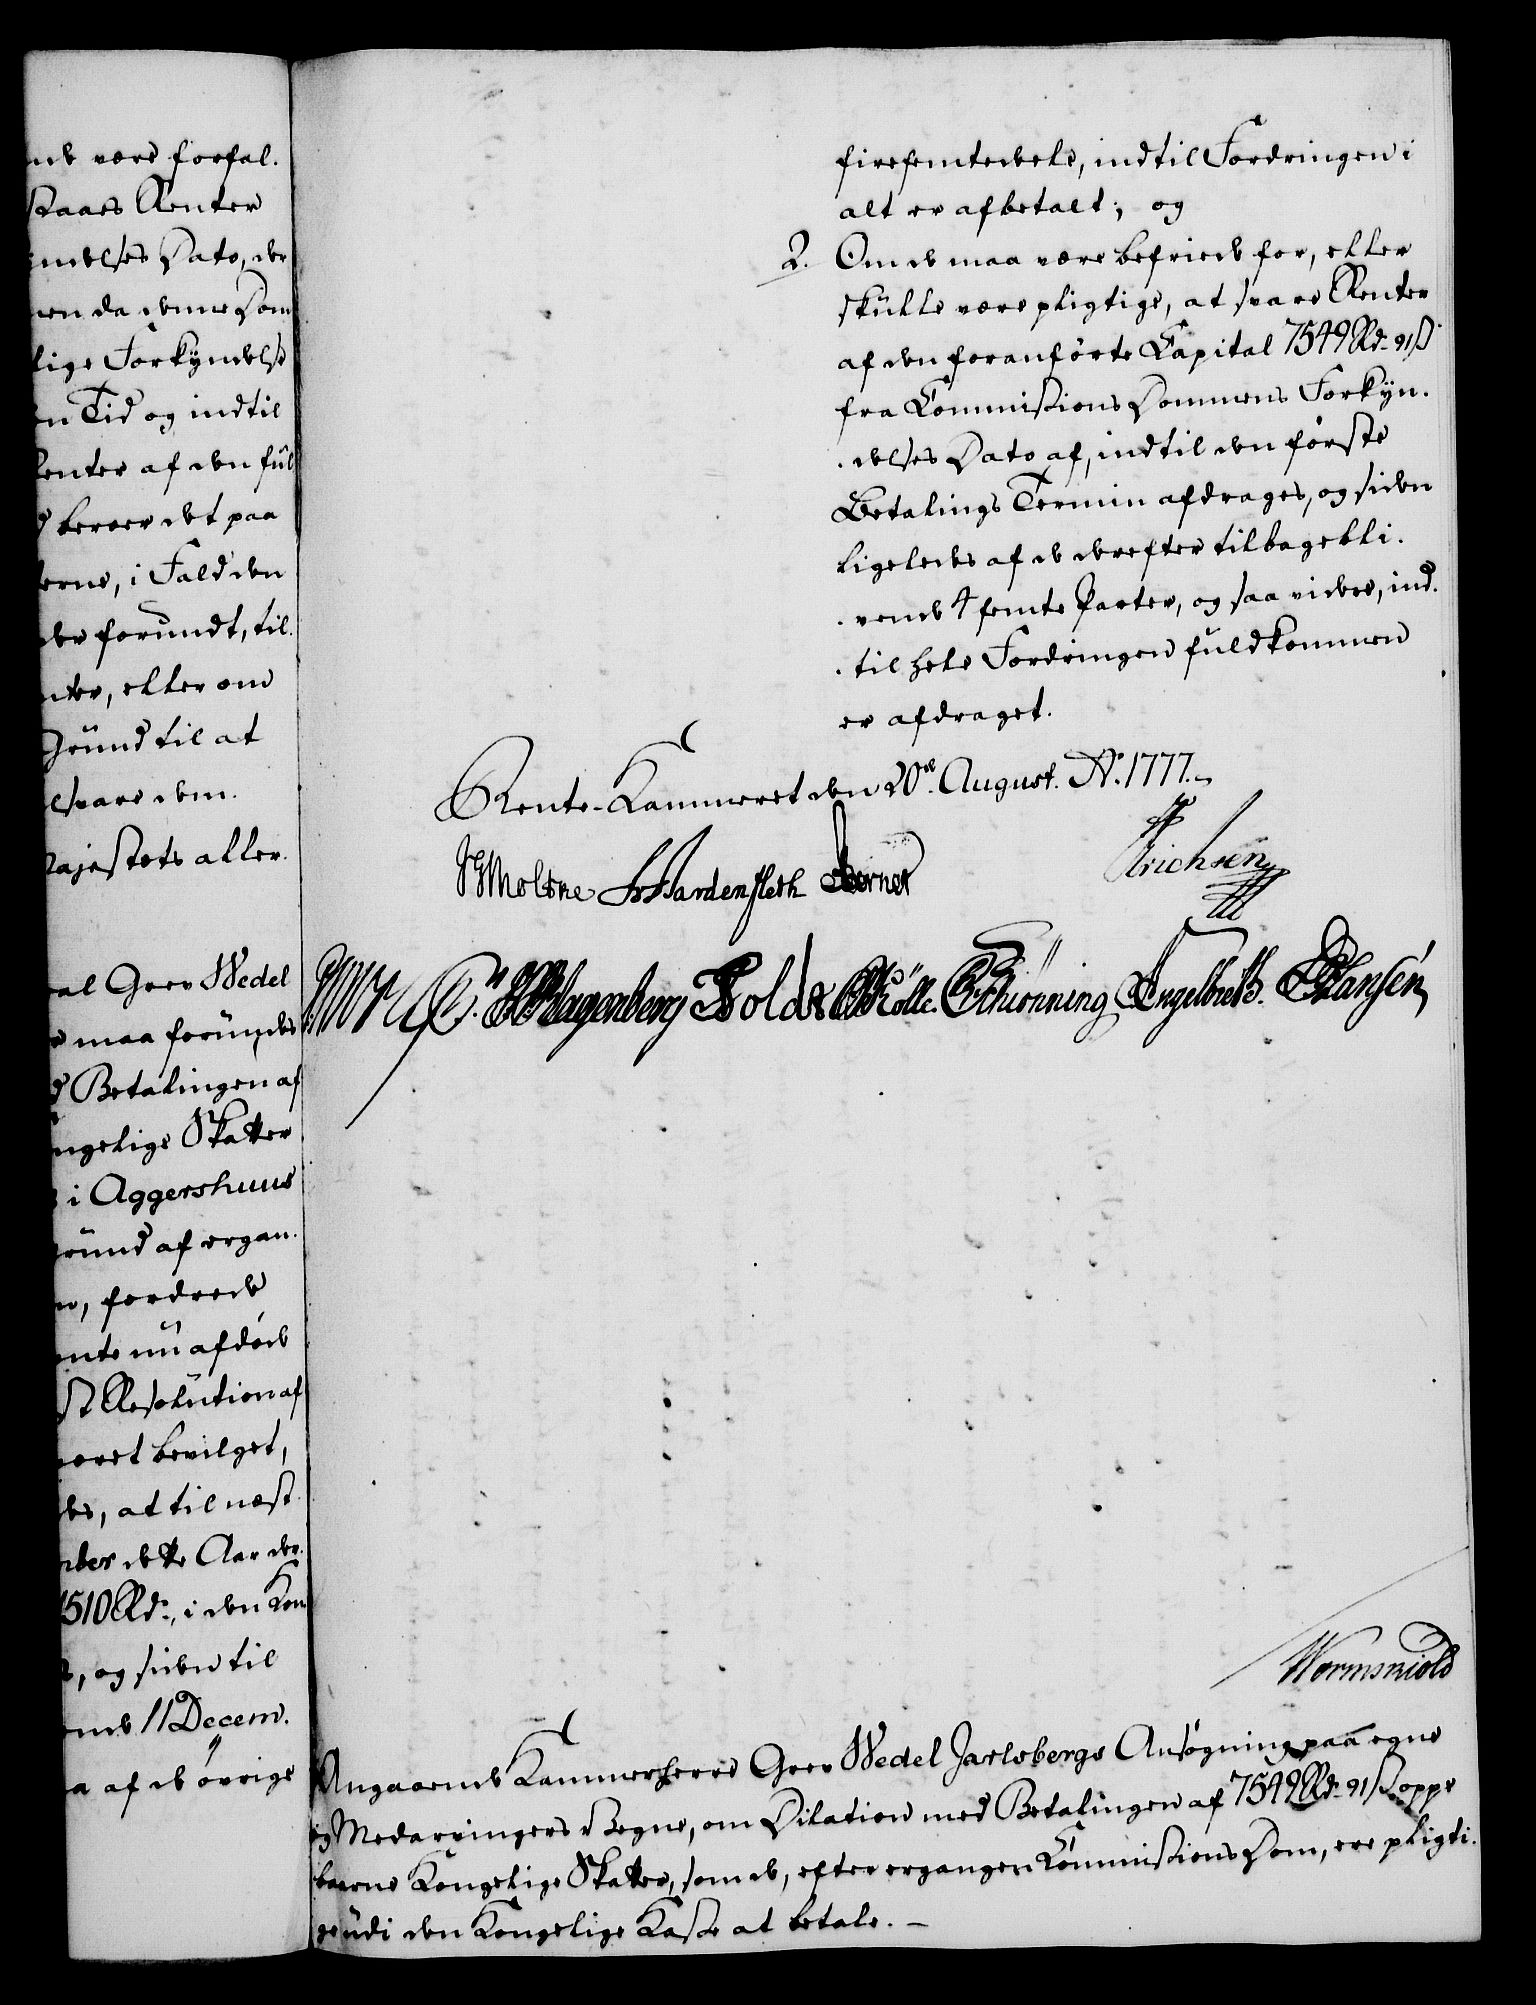 nde være forfal.
staaes Renter
yndelses Dato, der
men da denne Dom
lige Forkyndelse
en Tid og indtil
Renter af den ful
d beroer det paa
erne, i Fald den
der forundt, til.
nter, eller om
Grund til at
svare dem.
Majestets aller.
ral Grev Wedel
maa forundes
d Betalingen af
ngelige Skatter
i Aggershuus
Grund af ergan.
fordrede
ente nu afdøde
st Resolution af
været bevilget,
des, at til næst
mber dette Aar der.
1510 Rd., i den Kon
og siden til
ende 11 Decem.
a af de øvrige
firefemtedele, indtil Fordringen i
alt er afbetalt; og
2. Om de maa være befriede for, eller
skulle være pligtige, at svare Renter
af den foranførte Capital 7549 Rd. 91 ß
fra Commissions Dommens Forkyn.
delses Dato af, indtil den første
Betalings Termin afdrages, og siden
ligeledes af de derefter tilbagebli.
vende 4 femte Parter, og saa videre, ind.
til hele Fordringen fuldkommen
er afdraget.
Rente-Kammeret den 20de August. Ao. 1777.
Moltke Hardenfleth Berner
Erichsen
Klagenberg Kølle. Schiønning Engelbreth. Hansen
Wormskiold
Angaaende Kammerherre Grev Wedel Jarlsbergs Ansøgning paa egne
og Medarvingers Vegne, om Dilation med Betalingen af 7549 Rd. 91 ß oppe
baarne Kongelige Skatter, som de, efter ergangen Commissions Dom, ere pligti.
ge udi den Kongelige Kasse at betale. –